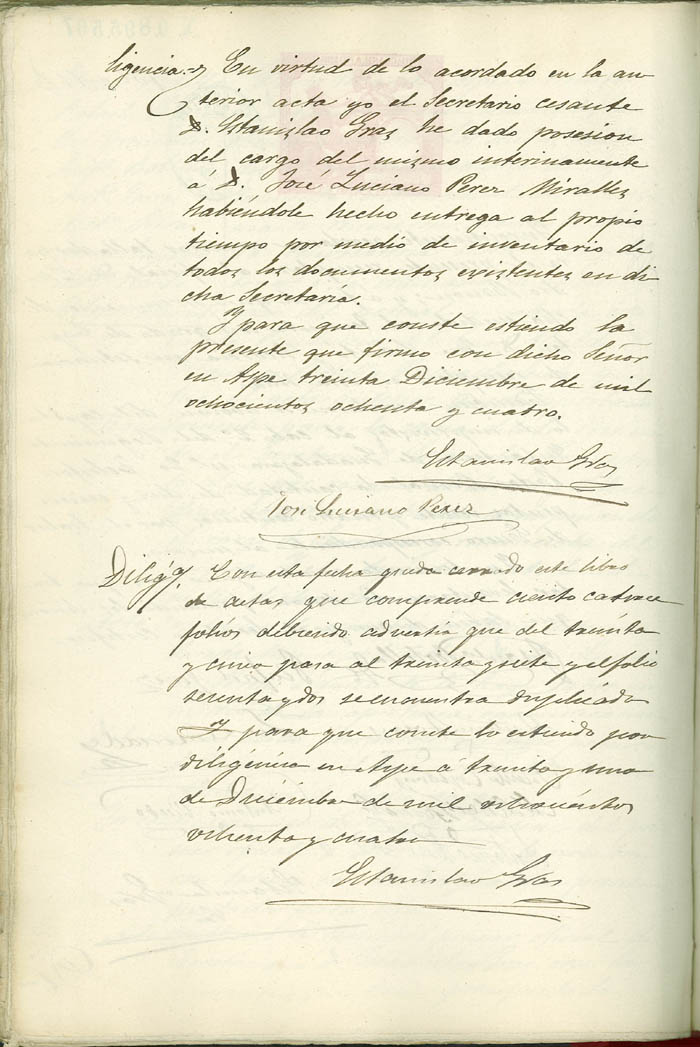 ligencia.= En virtud de lo acordado en la an-
terior acta yo el Secretario cesante
D. Estanislao Gras he dado posesion
del cargo del mismo interinamente
á D. José Luciano Perez Miralles
habiéndole hecho entrega al propio
tiempo por medio de inventario de
todos los documentos existentes en di
cha Secretaría.
Y para que conste estiendo la
presente que firmo con dicho Señor
en Aspe treinta Diciembre de mil
ochocientos ochenta y cuatro.
Estanislao Gras
José Luciano Perez
Dilig.ª Con esta fecha queda cerrado este libro
de actas que comprende ciento catorce
folios debiendo advertir que del treinta
y cinco pasa al treinta y siete y el folio
setenta y dos se encuentra duplicado
Y para que conste lo estiendo por
diligencia en Aspe á treinta y uno
de Diciembre de mil ochocientos
ochenta y cuatro
Estanislao Gras